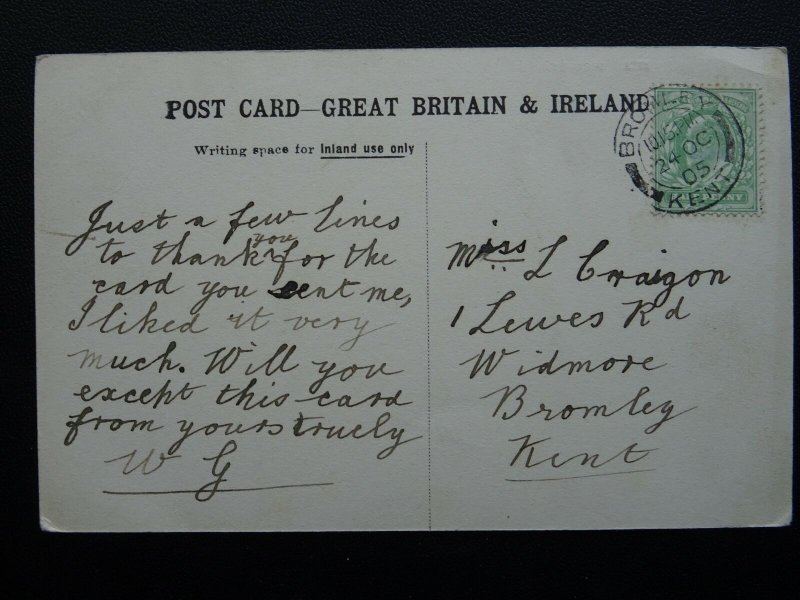 POST CARD—GREAT BRITAIN & IRELAND
Writing space for Inland use only
BROMLEY
10.15PM
24 OC
05
KENT
NY
Just a few lines
to thank you for the
card you sent me,
I liked it very
much. Will you
except this card
from yours truely
W G
Miss L Craigon
1 Lewes Rd
Widmore
Bromley
Kent